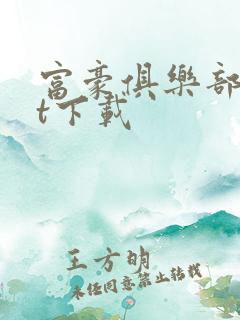 富豪俱樂部
t下載
王方明
未经同意禁止转载